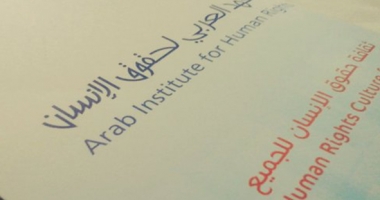 العربي لحقوق الإنسان
Arab Institute for Human
ثقافة حقوق الانسان للجميع
Human Rights Cultur